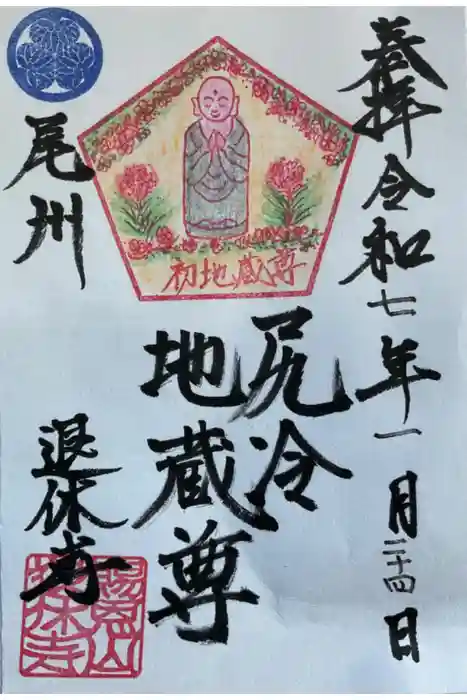 奉拝令和七年一月二十四日
初地蔵尊
尻冷
地蔵尊
尾州
退休寺
退休寺